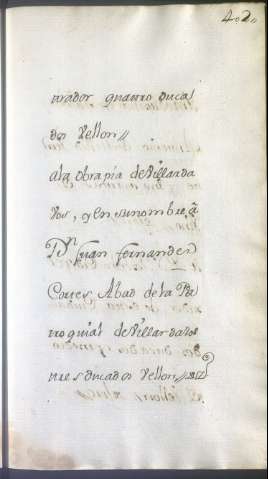 402
nrador quatro duca
dos Vellon //
ala Obra pia de Villarda
Vos, y en su nombre, â
Dn Juan fernandez
Cortes Abad de la Pa
rroquial de Villardavos
tres ducados Vellon //